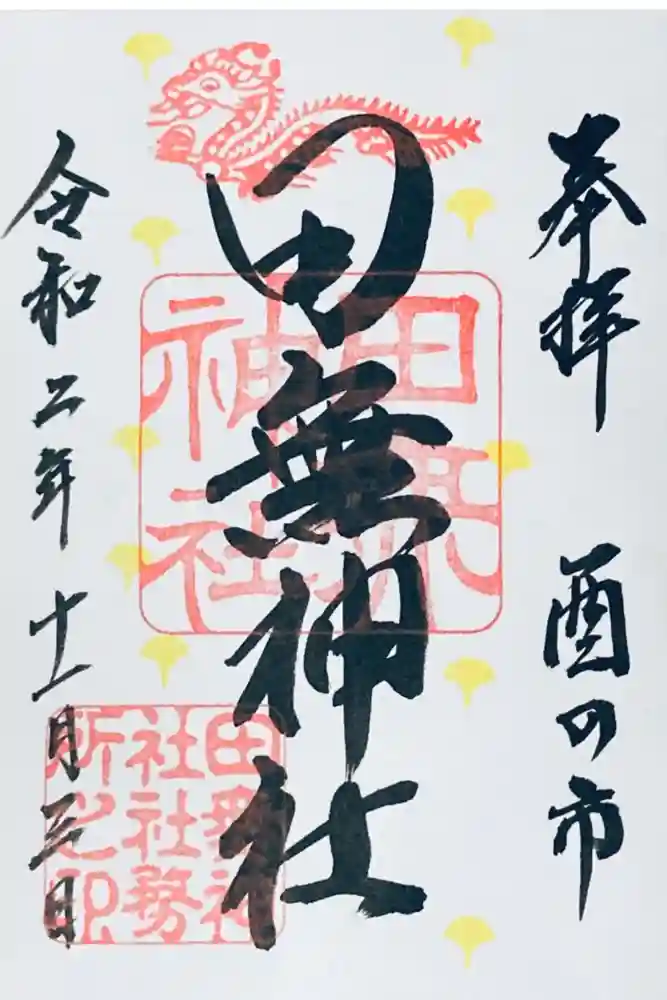 奉拝 酉の市
田無神社
田無神社
令和二年十一月二日
田無神社社務所之印